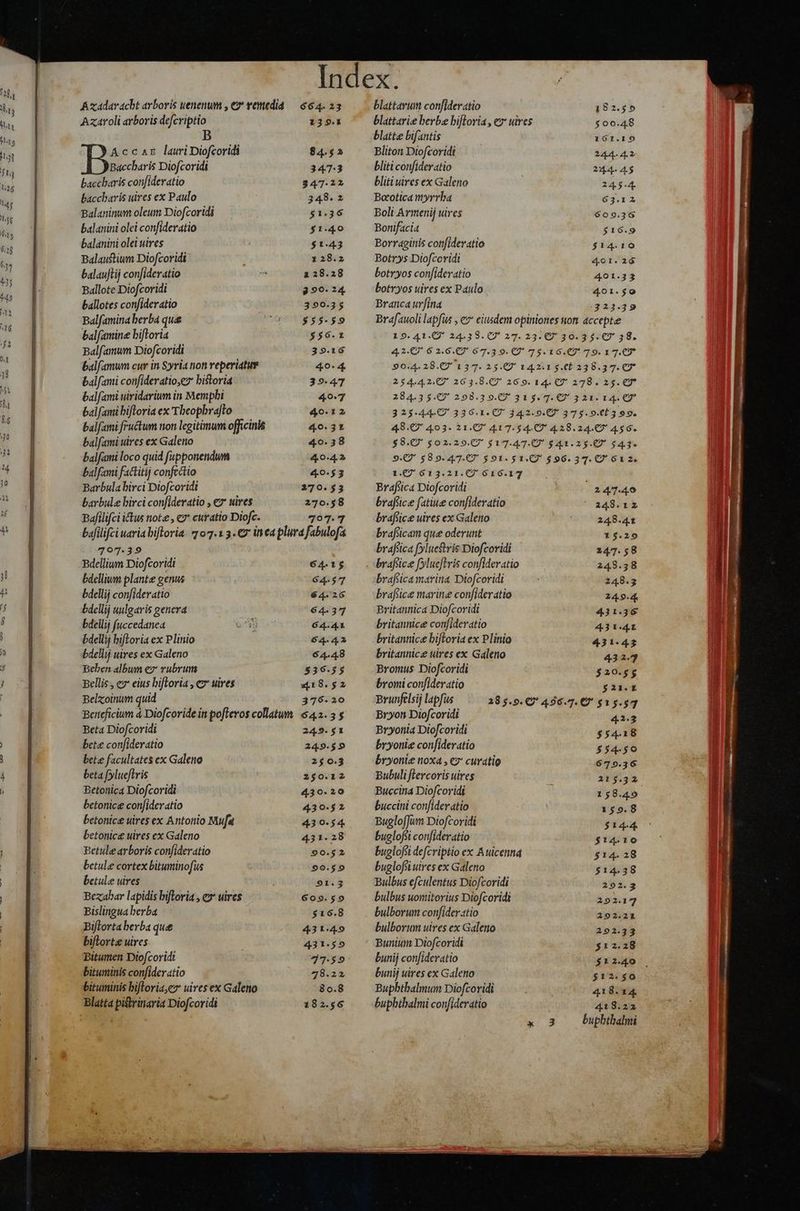 Index.
Axadaracht arboris uenenum, & remedia 664.23
Azaroli arboris descriptio 139.1
B
BAccar lauri Dioscoridi 84.52
Baccharis Dioscoridi 347.3
baccharis consideratio 347.22
baccharis uires ex Paulo 348.2
Balaninum oleum Dioscoridi 51.36
balanini olei consideratio 51.40
balanini olei uires 51.43
Balaustium Dioscoridi 128.2
balaustij consideratio 128.28
Ballote Dioscoridi 390.24
ballotes consideratio 390.35
Balsamina herba quæ 555.59
balsaminæ historia 556.1
Balsamum Dioscoridi 39.16
balsamum cur in Syria non reperiatur 40.4
balsami consideratio, & historia 39.47
balsami uiridarium in Memphi 40.7
balsami historia ex Theophrasto 40.12
balsami fructum non legitimum officinis 40.31
balsami uires ex Galeno 40.38
balsami loco quid supponendum 40.42
balsami factitij confectio 40.53
Barbula hirci Dioscoridi 270.53
barbulæ hirci consideratio, & uires 270.58
Basilisci ictus notæ, & curatio Diosc. 707.7
basilisci uaria historia 707.13. & in ea plura fabulosa
707.39
Bdellium Dioscoridi 64.15
bdellium plantæ genus 64.57
bdellij consideratio 64.26
bdellij uulgaris genera 64.37
bdellij succedanea 64.41
bdellij historia ex Plinio 64.42
bdellij uires ex Galeno 64.48
Behen album & rubrum 536.55
Bellis, & eius historia, & uires 418.52
Belzoinum quid 376.20
Beneficium à Dioscoride in posteros collatum 642.35
Beta Dioscoridi 249.51
betæ consideratio 249.59
betæ facultates ex Galeno 250.3
beta syluestris 250.12
Betonica Dioscoridi 430.20
betonicæ consideratio 430.52
betonicæ uires ex Antonio Musa 430.54
betonicæ uires ex Galeno 431.28
Betulæ arboris consideratio 90.52
betulæ cortex bituminosus 90.59
betulæ uires 91.3
Bezahar lapidis historia, & uires 609.59
Bislingua herba 516.8
Bistorta herba quæ 431.49
bistortæ uires 431.59
Bitumen Dioscoridi 77.59
bituminis consideratio 78.22
bituminis historia, & uires ex Galeno 80.8
Blatta pistrinaria Dioscoridi 182.56
blattarum consideratio 182.59
blattariæ herbæ historia, & uires 500.48
blattæ bisantis 161.19
Bliton Dioscoridi 244.42
bliti consideratio 244.45
bliti uires ex Galeno 245.4
Bœotica myrrha 63.12
Boli Armenij uires 609.36
Bonifacia 516.9
Borraginis consideratio 514.10
Botrys Dioscoridi 401.26
botryos consideratio 401.33
botryos uires ex Paulo 401.50
Branca ursina 323.39
Brasauoli lapsus, & eiusdem opiniones non acceptæ
19.41.& 24.38.& 27.23.& 30.35.& 38.
42.& 62.6.& 67.39.& 75.16.& 79.17.&
90.4.28.& 137.25.& 142.15.& 238.37.&
254.42.& 263.8.& 269.14.& 278.25.&
284.35.& 298.39.& 315.7.& 321.14.&
325.44.& 336.1.& 342.9.& 375.9.& 399.
48.& 403.21.& 417.54.& 428.24.& 456.
58.& 502.29.& 517.47.& 541.25.& 543.
9.& 589.47.& 591.51.& 596.37.& 612.
1.& 613.21.& 616.17
Brassica Dioscoridi 247.40
brassicæ satiuæ consideratio 248.12
brassicæ uires ex Galeno 248.41
brassicam quæ oderunt 15.29
brassica syluestris Dioscoridi 247.58
brassicæ syluestris consideratio 248.38
brassica marina Dioscoridi 248.3
brassicæ marinæ consideratio 249.4
Britannica Dioscoridi 431.36
britannicæ consideratio 431.41
britannicæ historia ex Plinio 431.43
britannicæ uires ex Galeno 432.7
Bromus Dioscoridi 520.55
bromi consideratio 521.1
Brunfelsij lapsus 285.9.& 496.7.& 515.57
Bryon Dioscoridi 42.3
Bryonia Dioscoridi 554.18
bryoniæ consideratio 554.50
bryoniæ noxa, & curatio 679.36
Bubuli stercoris uires 215.32
Buccina Dioscoridi 158.49
buccini consideratio 159.8
Buglossum Dioscoridi 514.4
buglossi consideratio 514.10
buglossi descriptio ex Auicenna 514.28
buglossi uires ex Galeno 514.38
Bulbus esculentus Dioscoridi 292.3
bulbus uomitorius Dioscoridi 292.17
bulborum consideratio 292.21
bulborum uires ex Galeno 292.33
Bunium Dioscoridi 512.28
bunij consideratio 512.40
bunij uires ex Galeno 512.50
Buphthalmum Dioscoridi 418.14
buphthalmi consideratio 418.22
* 3 buphthalmi